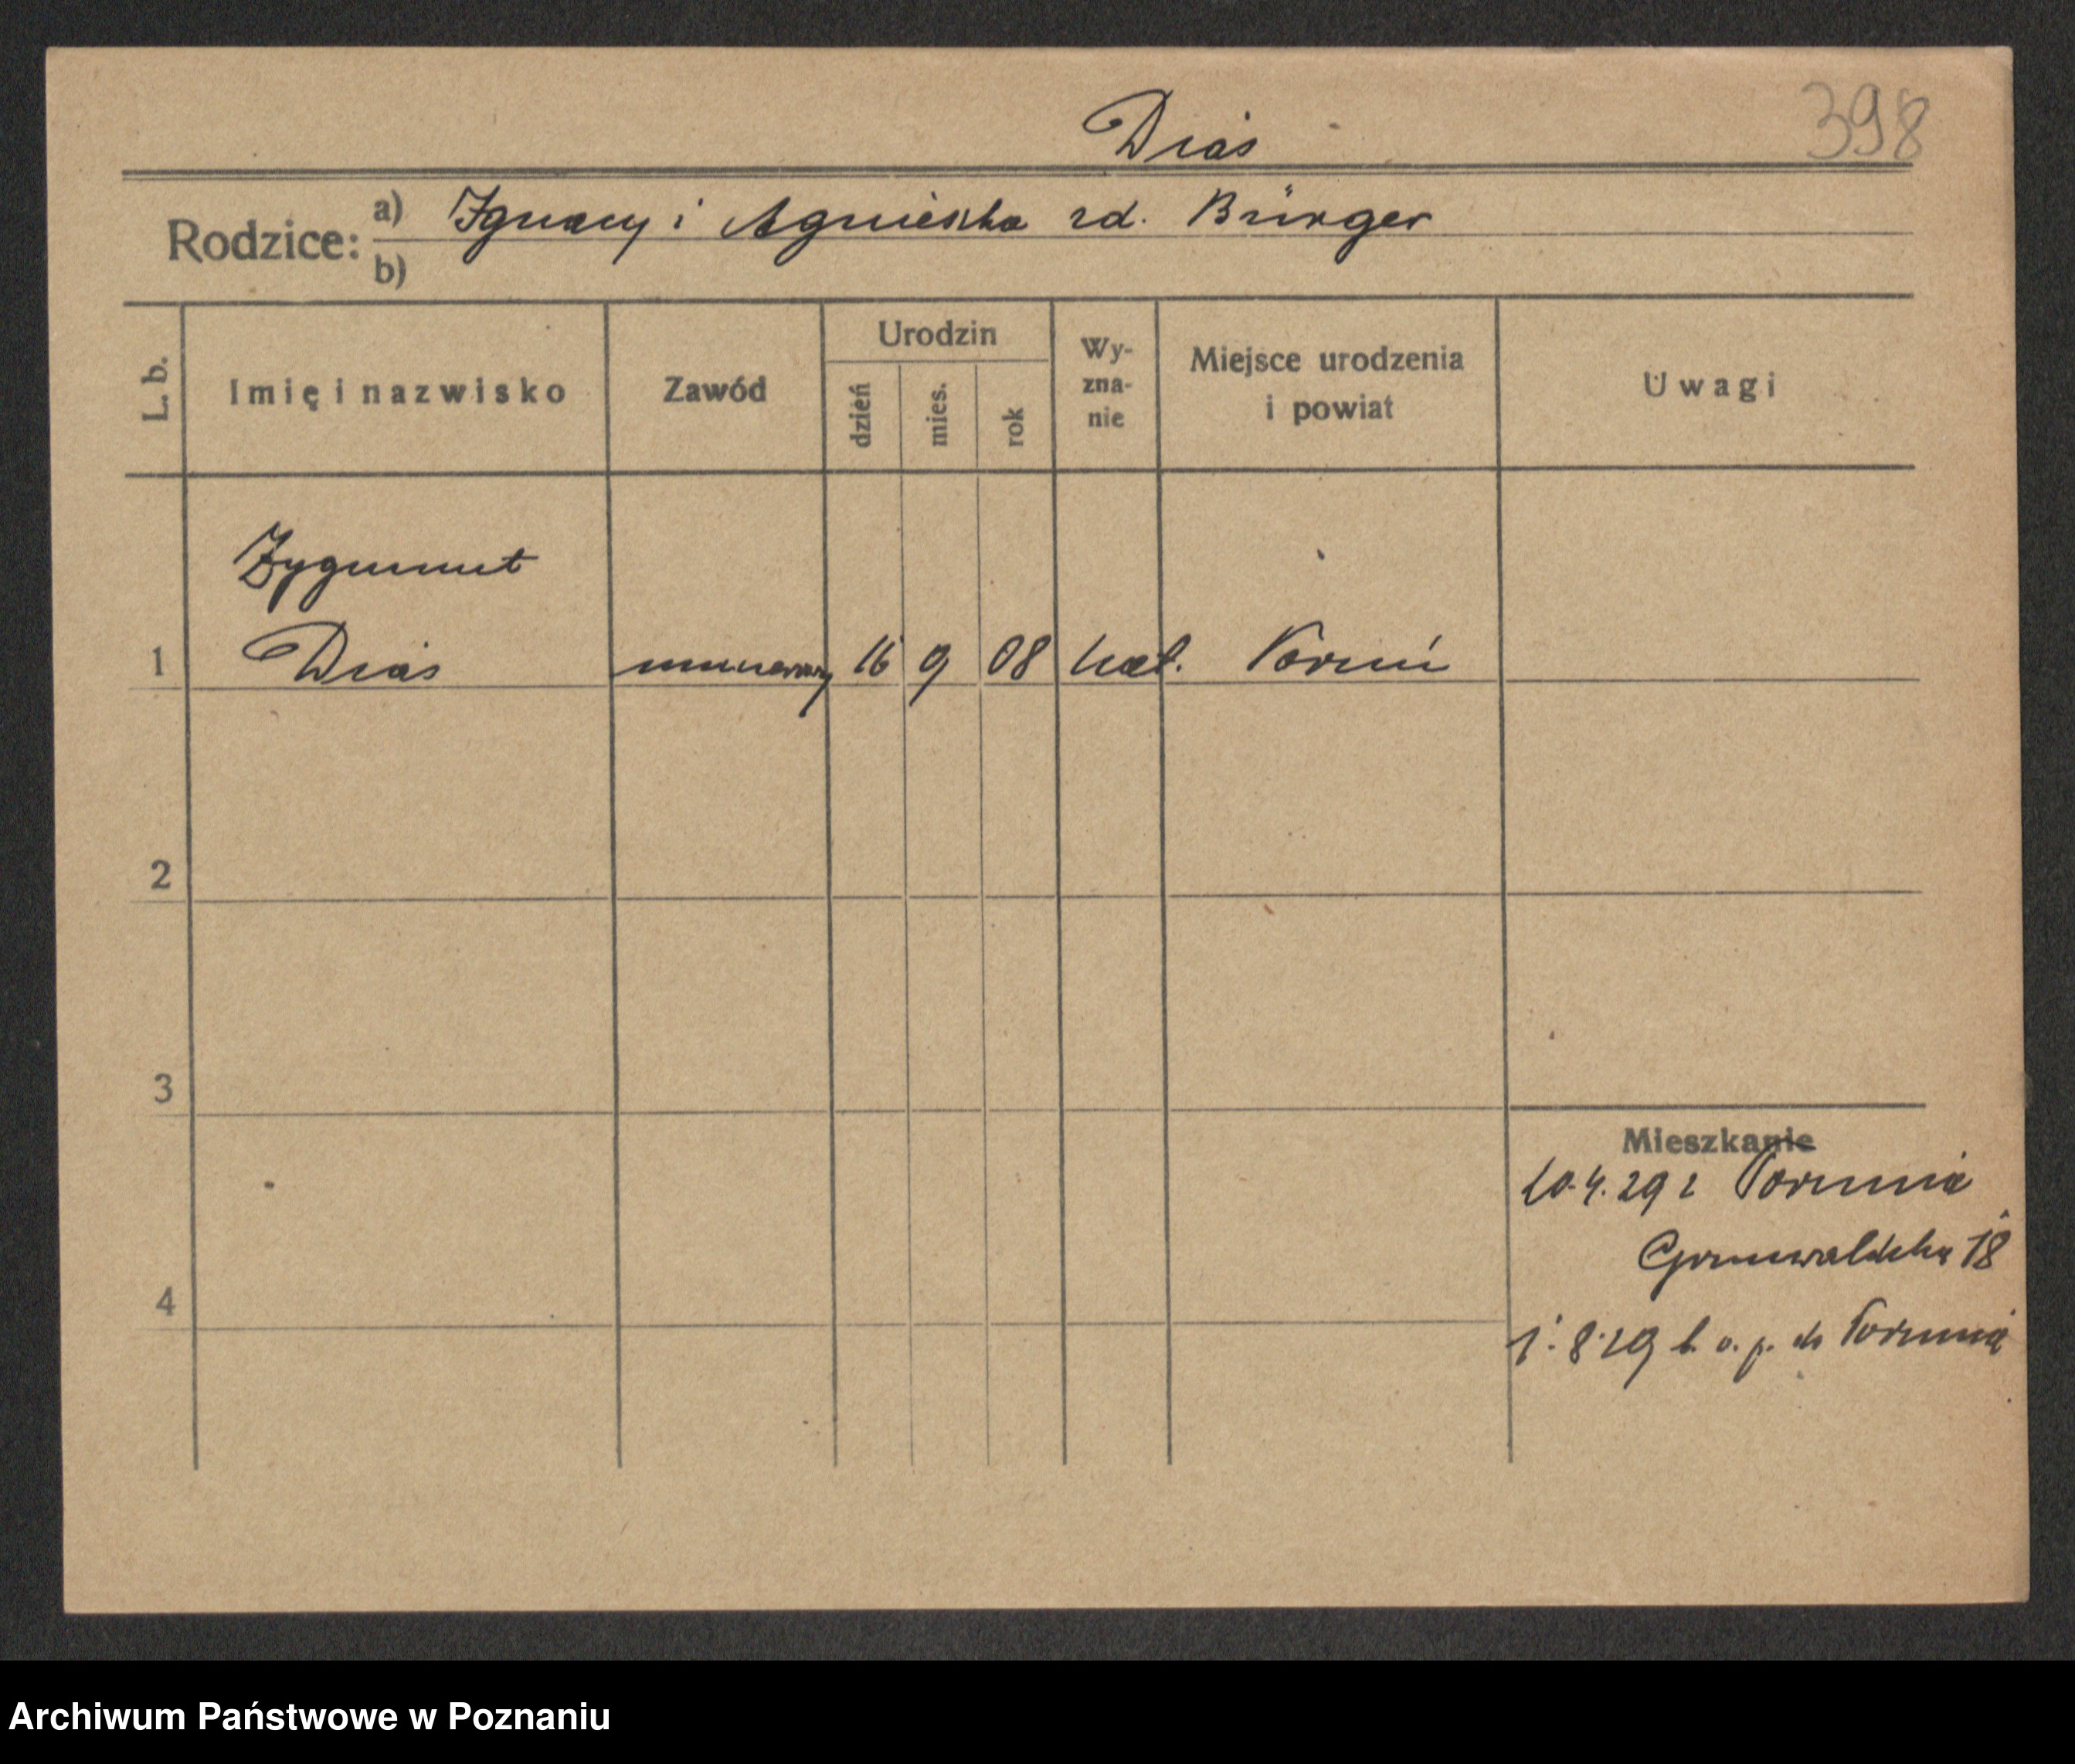 398
Diaś
Rodzice: a) Ignacy i Agnieszka zd. Bürger
b)
L. b. Imię i nazwisko Zawód Urodzin dzień mies. rok Wy-zna-nie Miejsce urodzenia i powiat Uwagi
Zygmunt
1 Diaś 16 9 08 kat. Toruń
2
3
Mieszkanie
10.4.29 z Torunia
Grunwaldzka 18
4
1.8.29 b. o. p. do Torunia
Archiwum Państwowe w Poznaniu